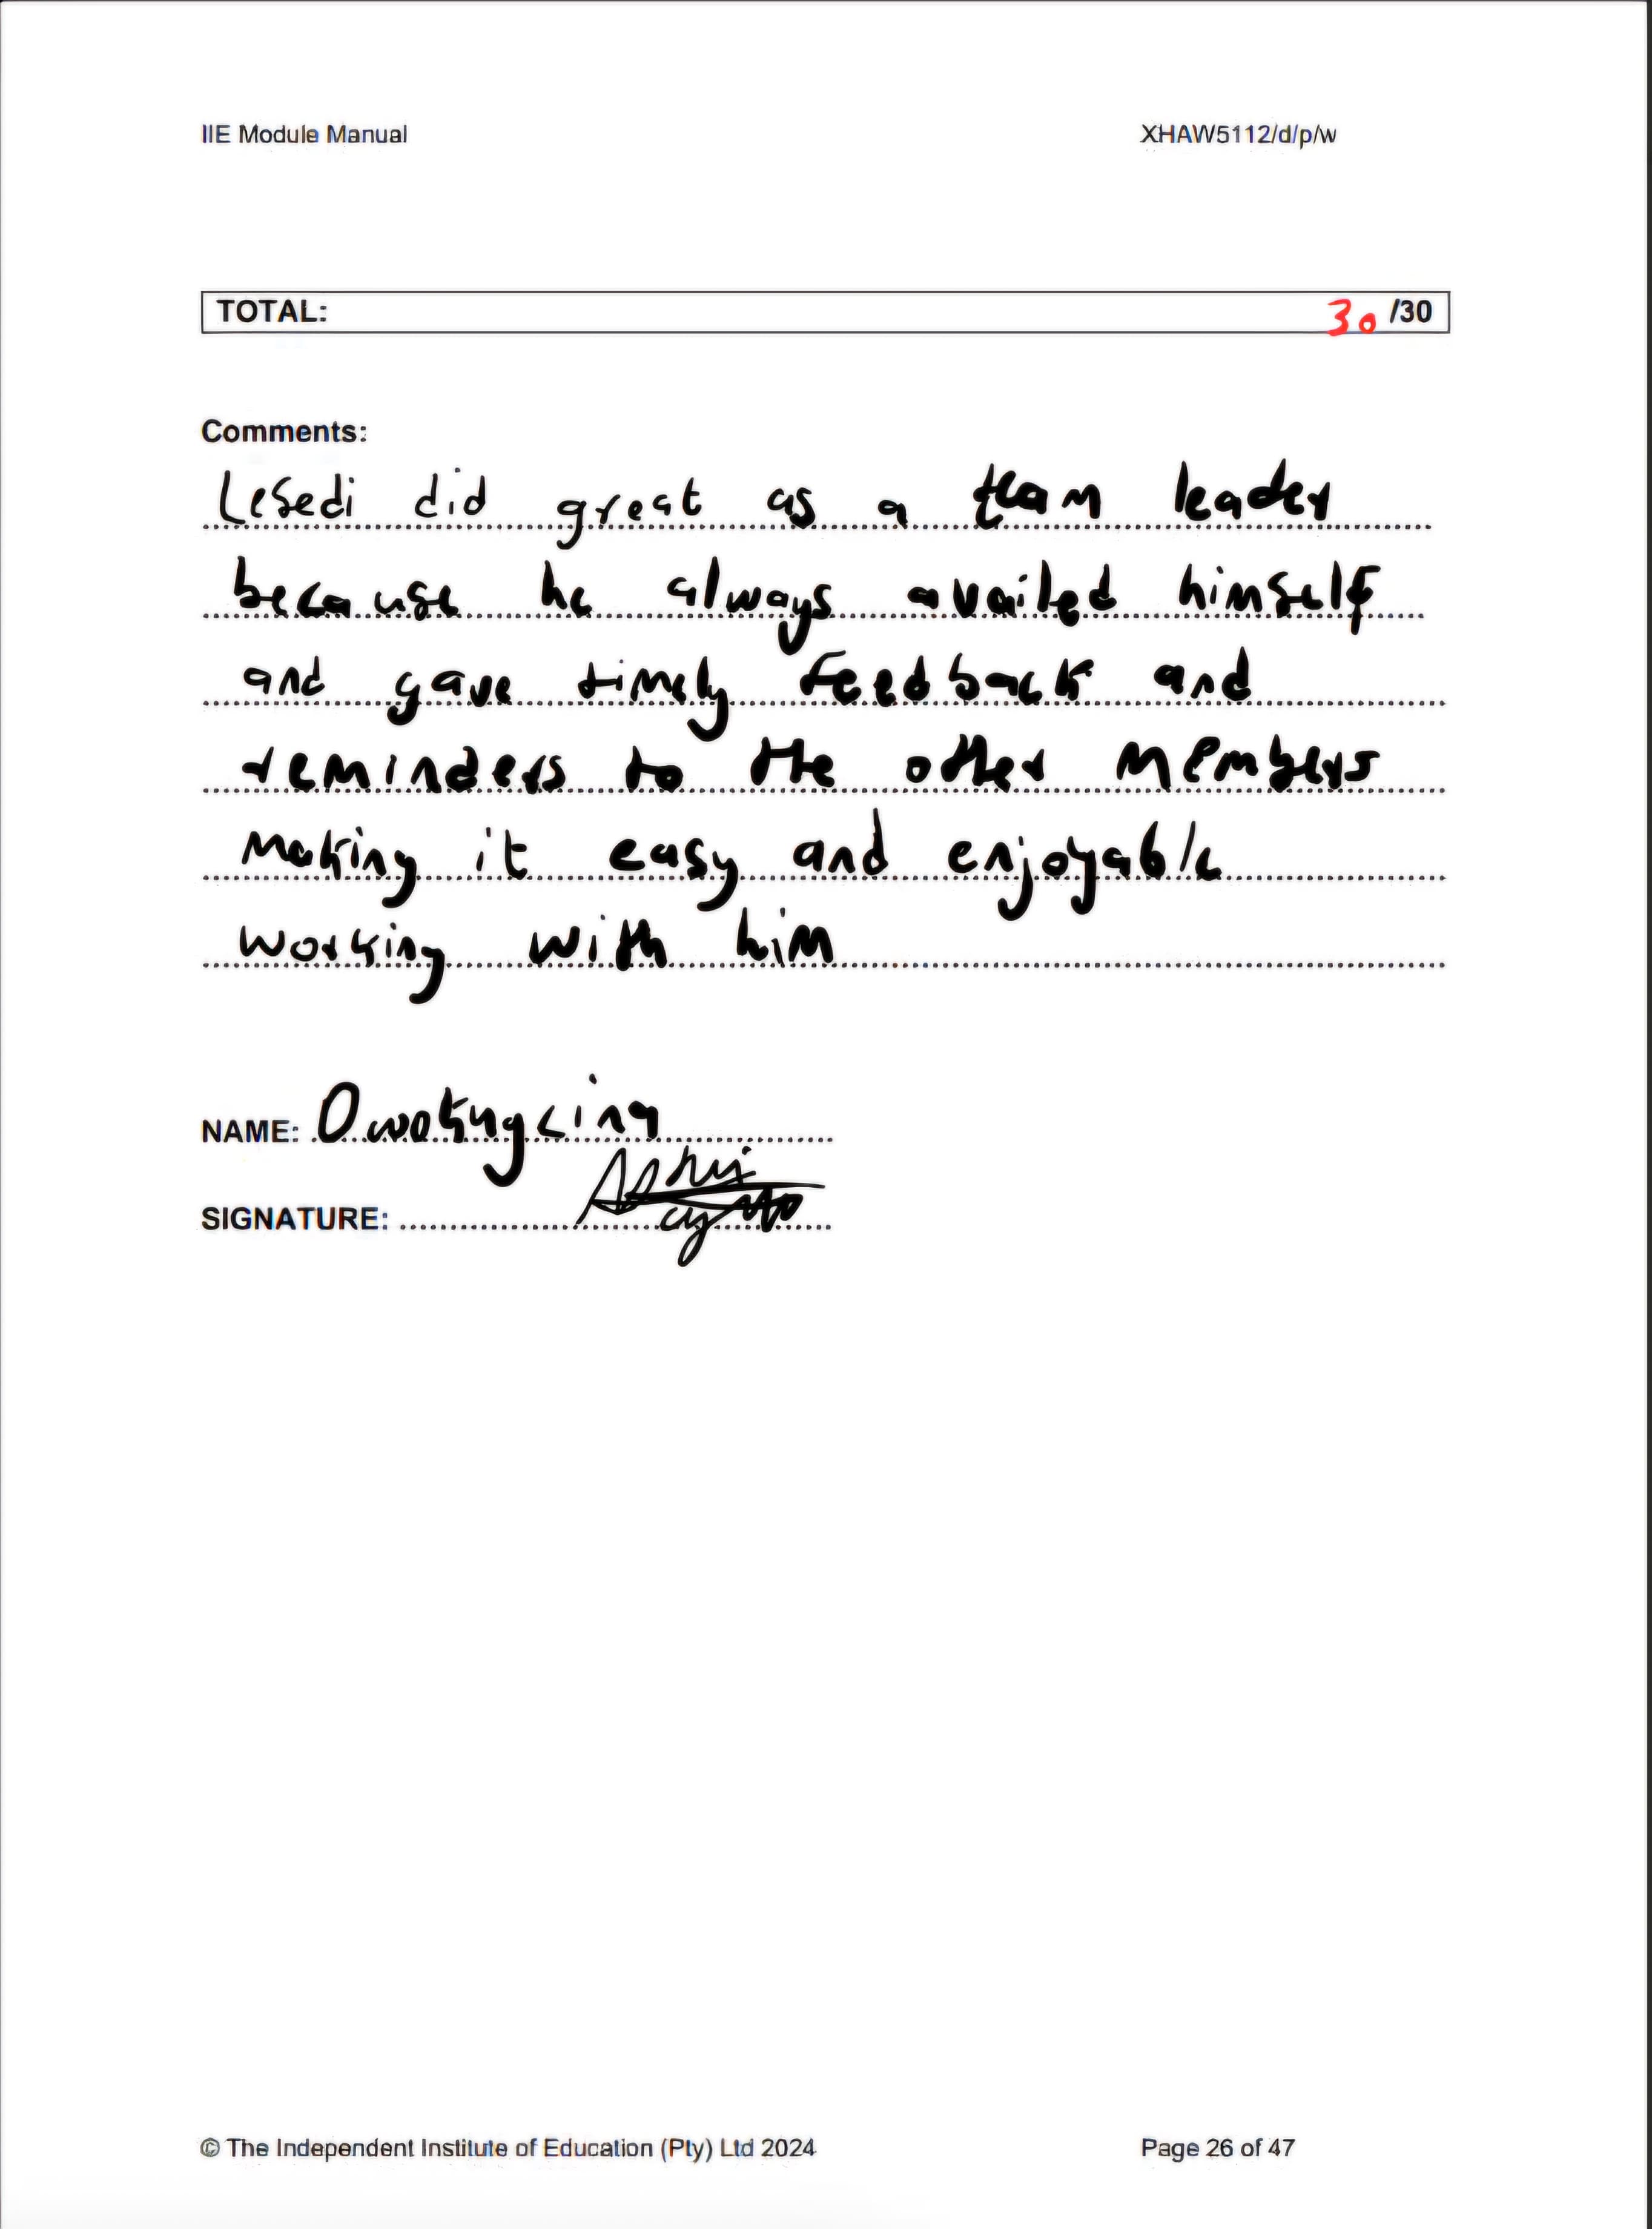 IIE Module Manual XHAW5112/d/p/w
TOTAL: 30 /30
Comments:
Lesedi did great as a team leader
because he always availed himself
and gave timely feedback and
reminders to the other members
making it easy and enjoyable
working with him
NAME:
SIGNATURE:
© The Independent Institute of Education (Pty) Ltd 2024 Page 26 of 47